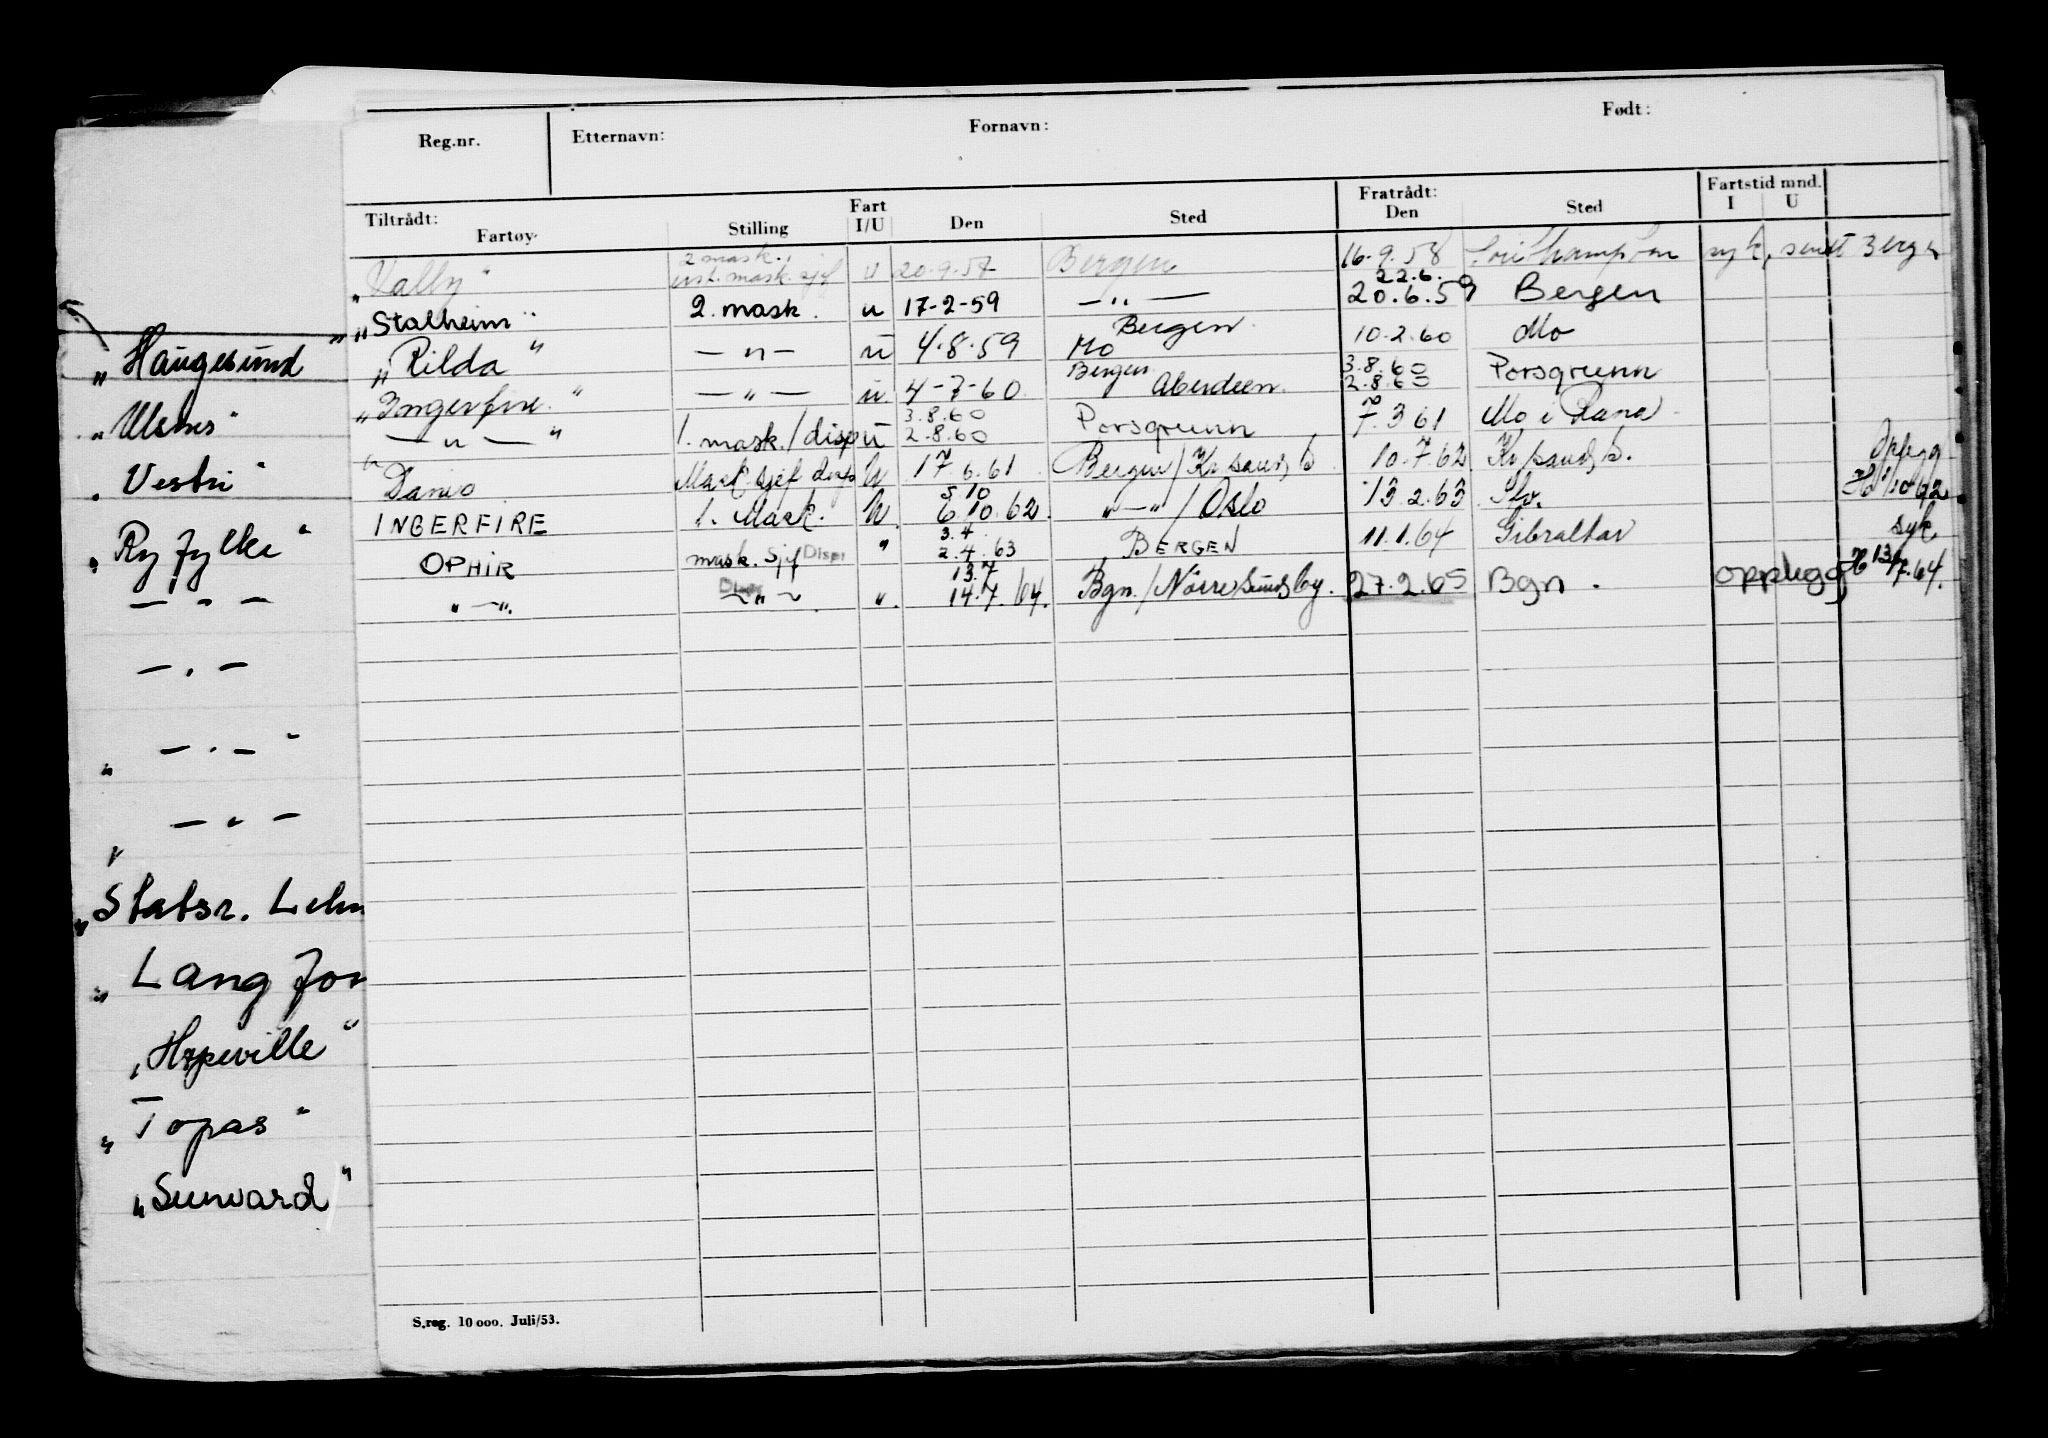 Reg.nr. Etternavn: Fornavn: Født:
Tiltrådt: Fartøy Stilling Fart I/U Den Sted Fratrådt: Den Sted Fartstid mnd. I U
2 mask.
„Vally" mask. sjef u 20.9.57 Bergen 16.9.58 Southampton syk, sendt Bergen
22.6.
„Stalheim" 2. mask. u 17-2-59 —„— 20.6.59 Bergen
Bergen
„Rilda" —„— u 4.8.59 Mo 10.2.60 Mo
Bergen 3.8.60
„Ingerfire" —„— u 4-7-60 Aberdeen 2.8.60 Porsgrunn
3.8.60
—„—" 1. mask./disp u 2.8.60 Porsgrunn 7.3 61 Mo i Rana
" Danio Mask sjef disp U 17.6.61 Bergen/Kr.sund 10.7.62 Kr.sund Opplegg
5 10
INGERFIRE 1. Mask. U. 6.10.62. „—"/Oslo 13.2.63 10 62
3.4. syk
OPHIR mask. sjf Disp " 2.4.63 BERGEN 11.1.64 Gibraltar
Disp 13.7
„—". ~"~ ". 14.7.64. Bgn./Nørresundby. 27.2.65 Bgn. opplegg 13/7.64.
„Haugesund"
„Ulsnes"
„Vestri"
„Ryfylke"
— „ —
— „ —
„ — „ — "
„ — „ —
„Statsr. Lehm
„Lang
„Hopeville"
„Topas"
„Sunvard"
S.reg. 10 000. Juli/53.